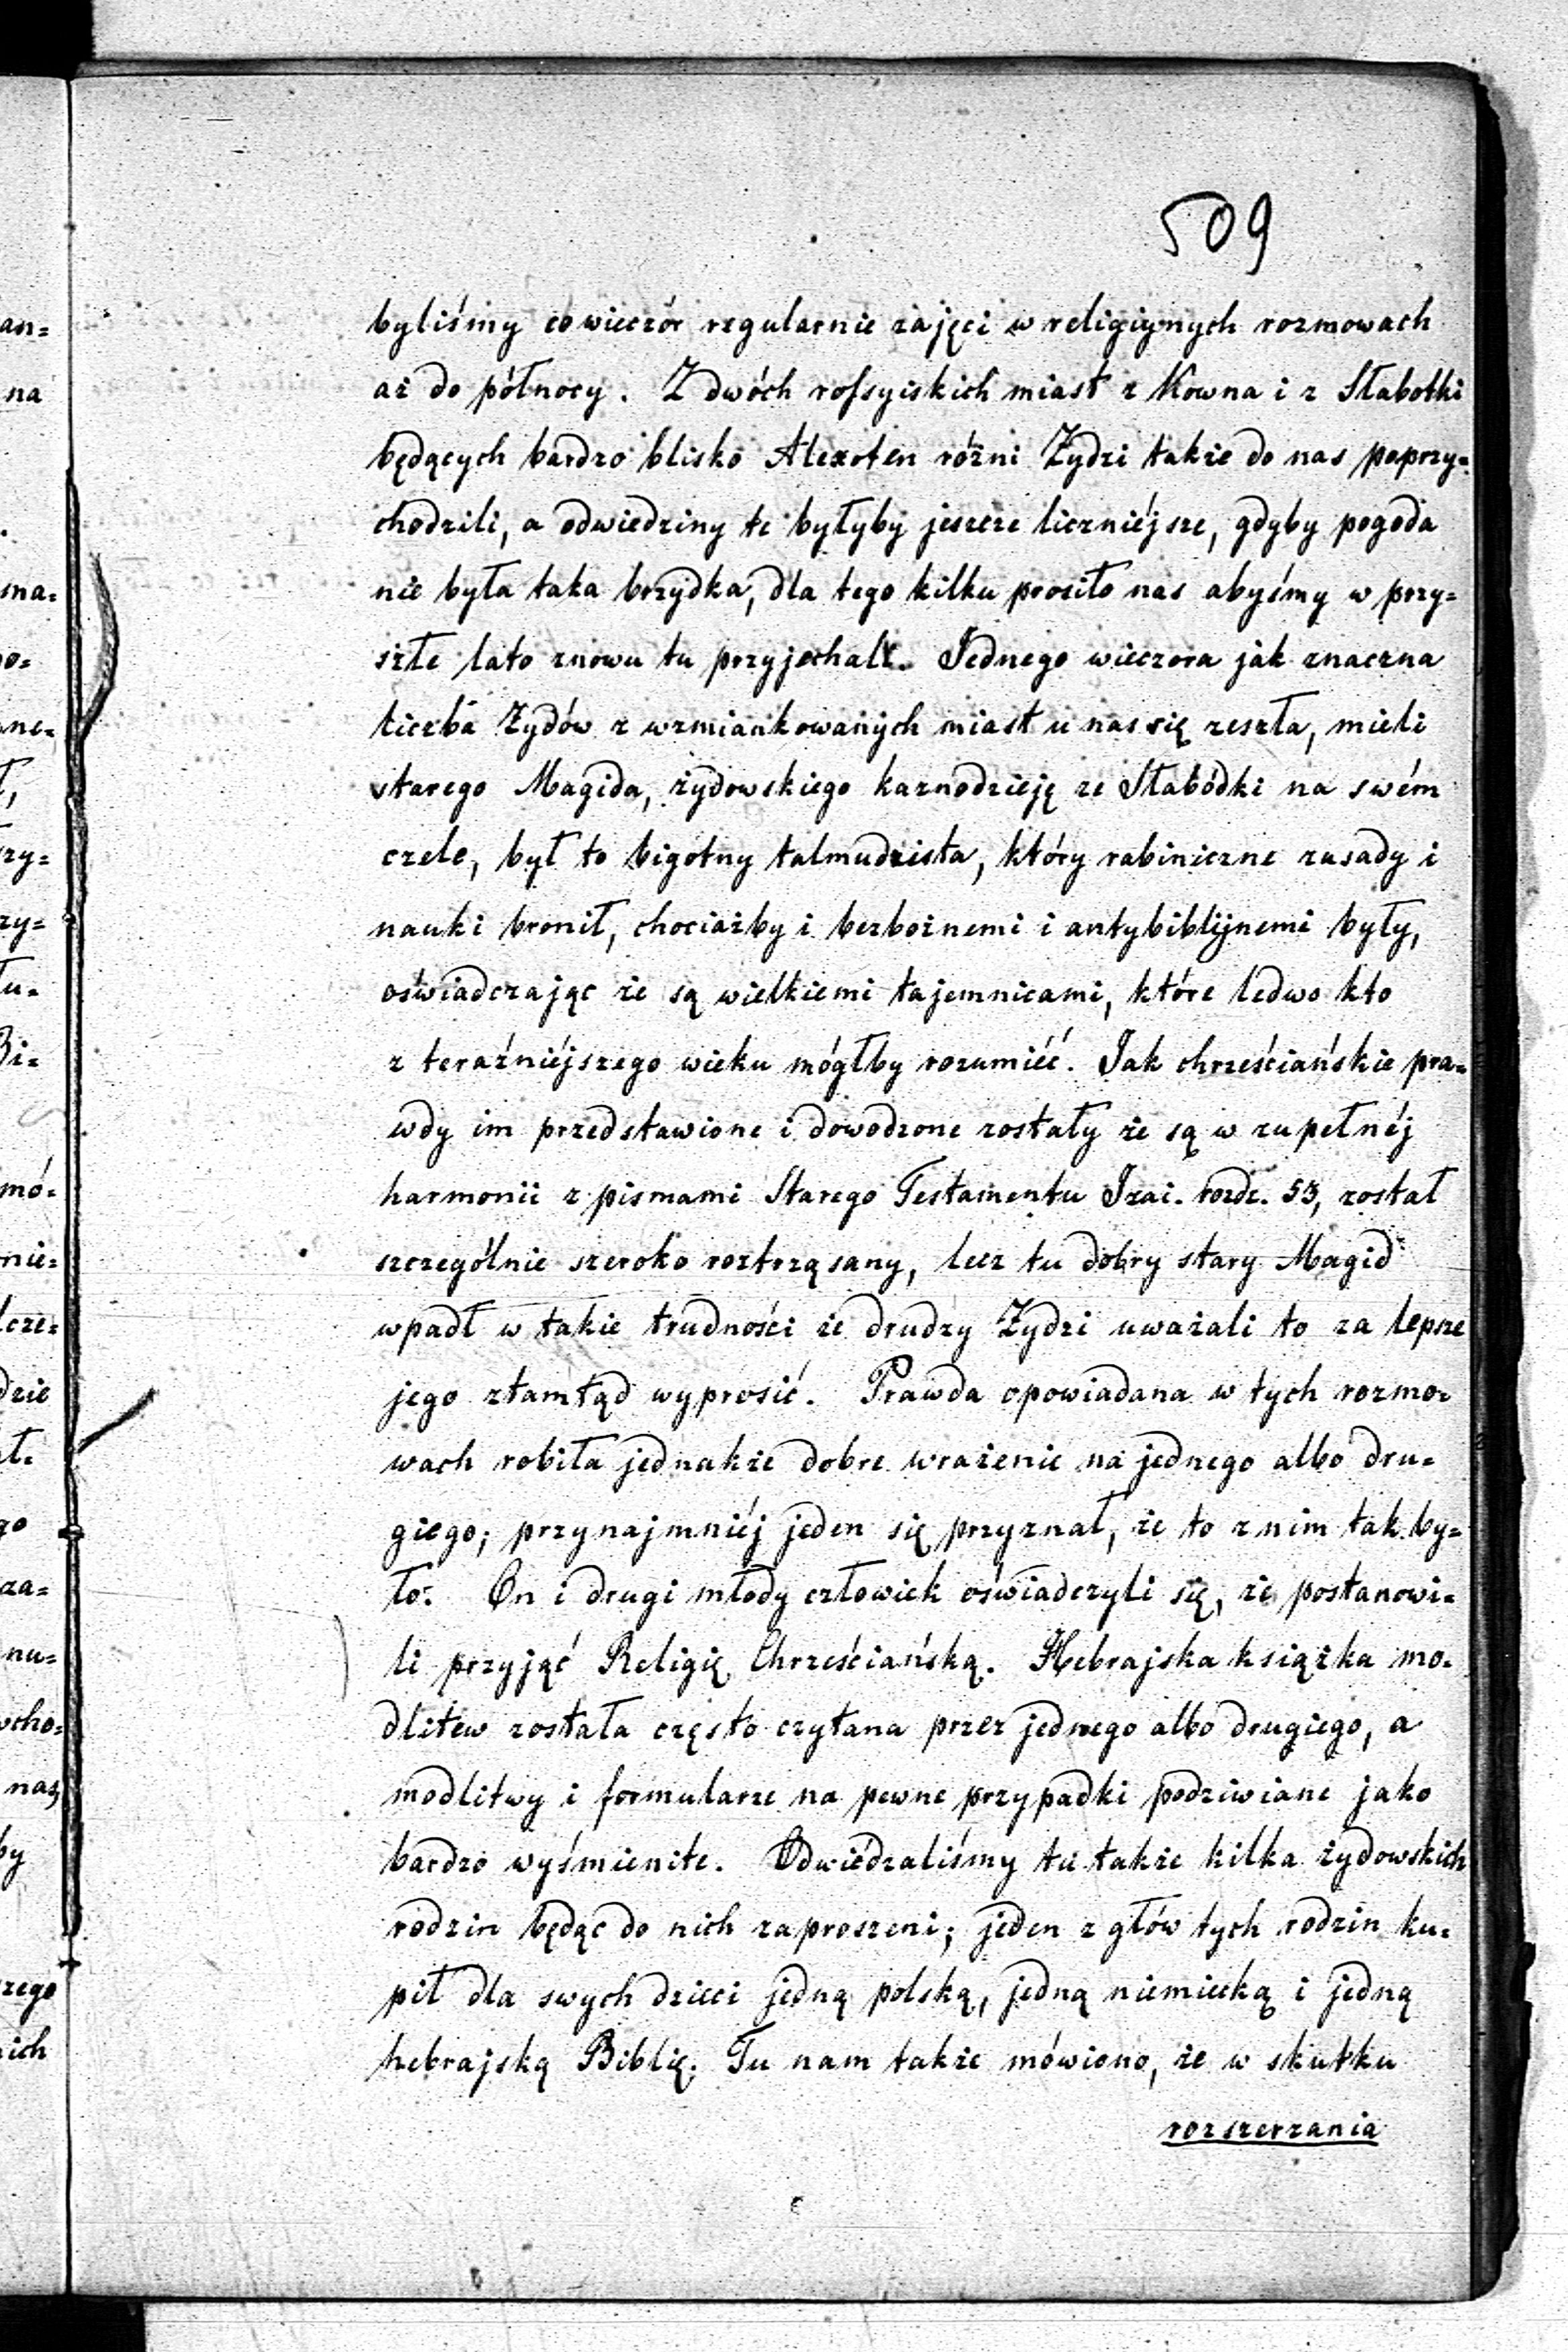 509
byliśmy co wieczór regularnie zajęci w religiynych rozmowach
aż do północy. Z dwóch rofsyiskich miast z Kowna i z Słabotki
będących bardzo blisko Alexoten różni Żydzi także do nas poprzy=
chodzili, a odwiedziny te byłyby jeszcze liczniéjsze, gdyby pogoda
nie była taka brzydka, dla tego kilku prosiło nas abyśmy w przy=
szłe lato znowu tu przyjechali. Jednego wieczora jak znaczna
liczba Żydów z wzmiankowanych miast u nas się zeszła, mieli
starego Magida, żydowskiego kaznodzieję ze Słabódki na swém
czele, był to bigotny talmudzista, który rabiniczne zasady i
nauki bronił, chociażby i bezbożnemi i antybiblijnemi były,
oświadczając że są wielkiemi tajemnicami, które ledwo kto
z teraźniéjszego wieku mógłby rozumiéć. Jak chrześciańskie pra=
wdy im przedstawione i dowodzone zostały że są w zupełnéj
harmonii z pismami Starego Testamentu Izai. rozdz. 53, został
szczególnie szeroko roztrząsany, lecz tu dobry stary Magid
wpadł w takie trudności że drudzy Żydzi uważali to za lepsze
jego ztamtąd wyprosić. Prawda opowiadana w tych rozmo=
wach robiła jednakże dobre wrażenie na jednego albo dru=
giego; przynajmniéj jeden się przyznał, że to z nim tak by=
ło. On i drugi młody człowiek oświadczyli się, że postanowi=
li przyjąć Religię Chrześciańską. Hebrajska książka mo=
dlitew została często czytana przez jednego albo drugiego, a
modlitwy i formularze na pewne przypadki podziwiane jako
bardzo wyśmienite. Odwiédzaliśmy tu także kilka żydowskich
rodzin będąc do nich zaproszeni; jeden z głów tych rodzin ku=
pił dla swych dzieci jedną polską, jedną niemiecką i jedną
hebrajską Biblię. Tu nam także mówiono, że w skutku
rozszerzania